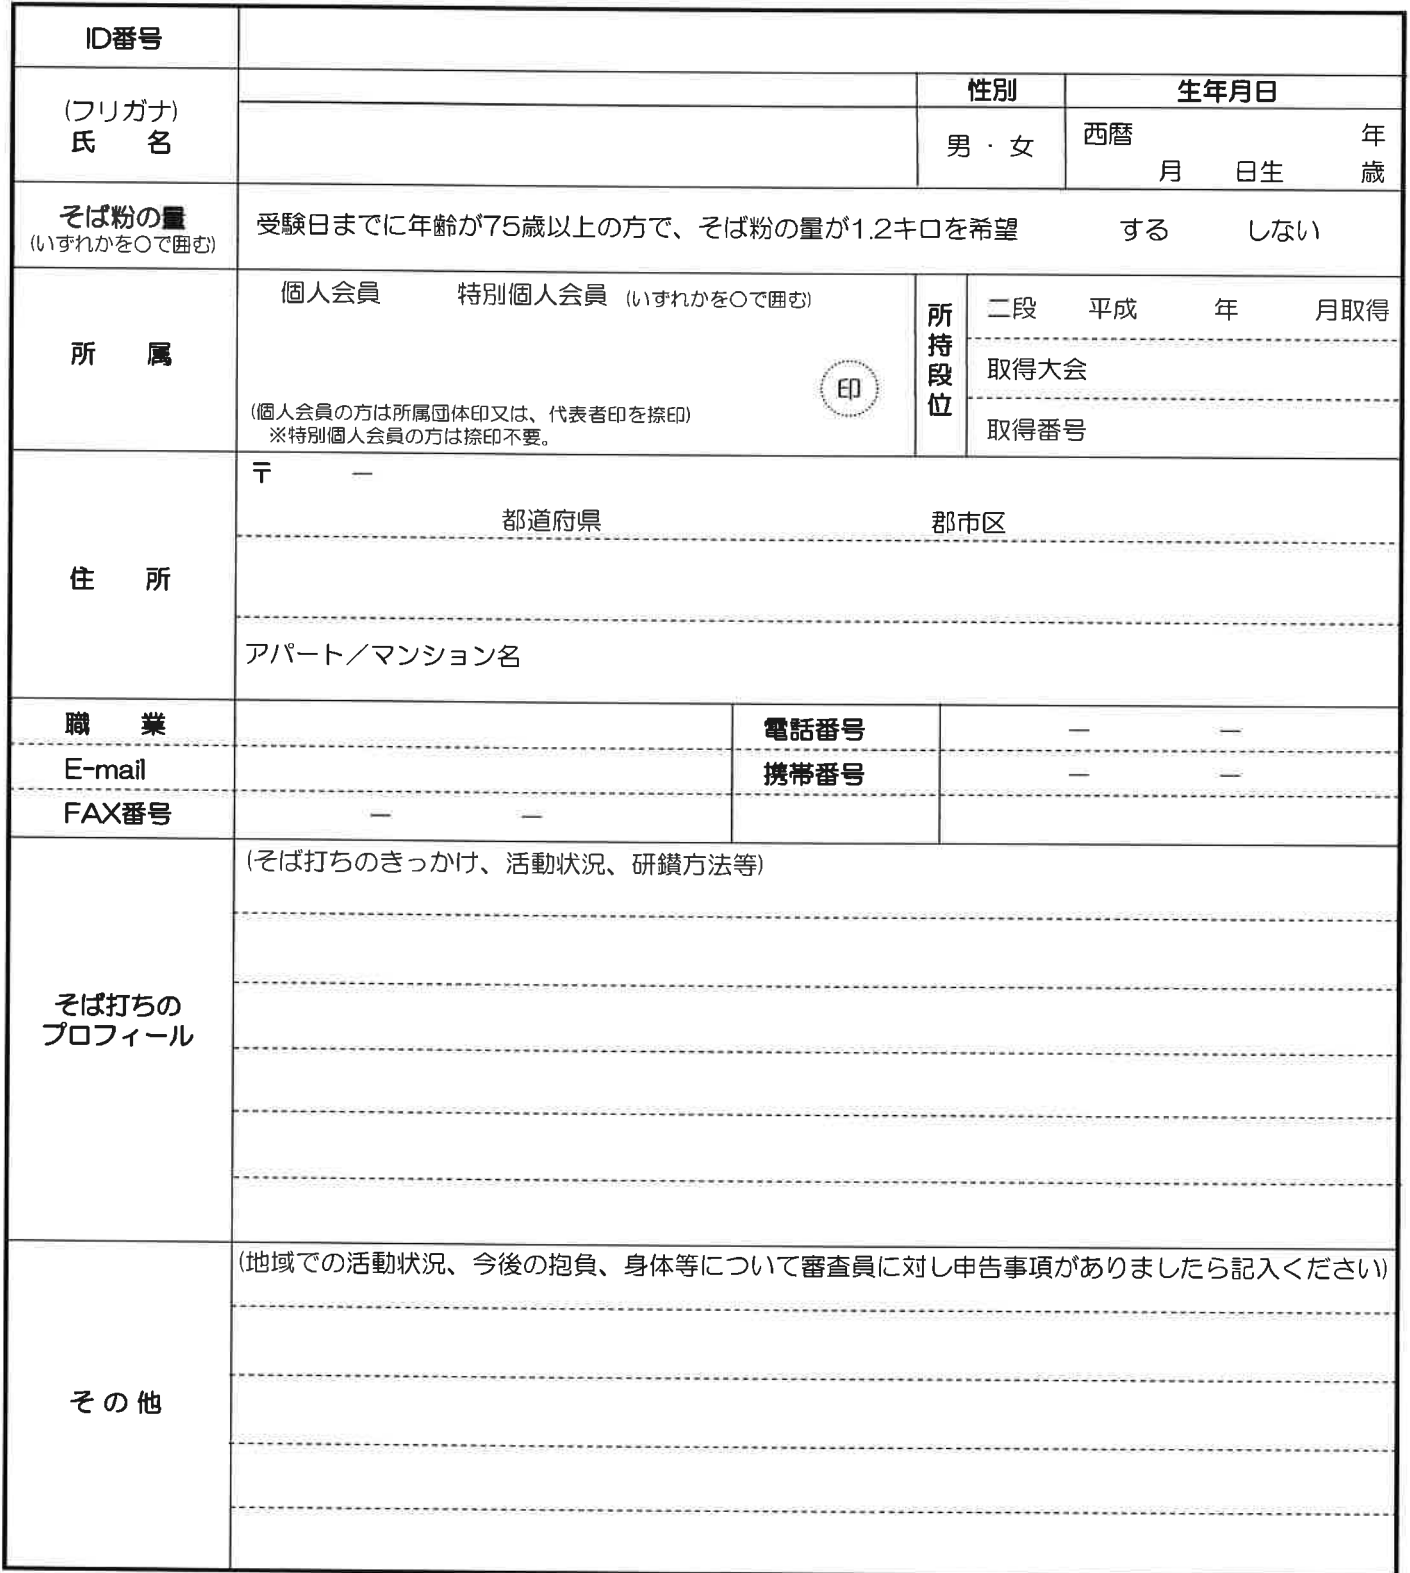 ID番号
(フリガナ)
氏　名
性別
生年月日
男・女
西暦　年
月　日生　歳
そば粉の量
(いずれかを○で囲む)
受験日までに年齢が75歳以上の方で、そば粉の量が1.2キロを希望　する　しない
所　属
個人会員　特別個人会員 (いずれかを○で囲む)
印
(個人会員の方は所属団体印又は、代表者印を捺印)
※特別個人会員の方は捺印不要。
所持段位
二段　平成　年　月取得
取得大会
取得番号
住　所
〒　－
都道府県　郡市区
アパート／マンション名
職　業
電話番号　－　－
E-mail
携帯番号　－　－
FAX番号　－　－
そば打ちの
プロフィール
(そば打ちのきっかけ、活動状況、研鑚方法等)
その他
(地域での活動状況、今後の抱負、身体等について審査員に対し申告事項がありましたら記入ください)